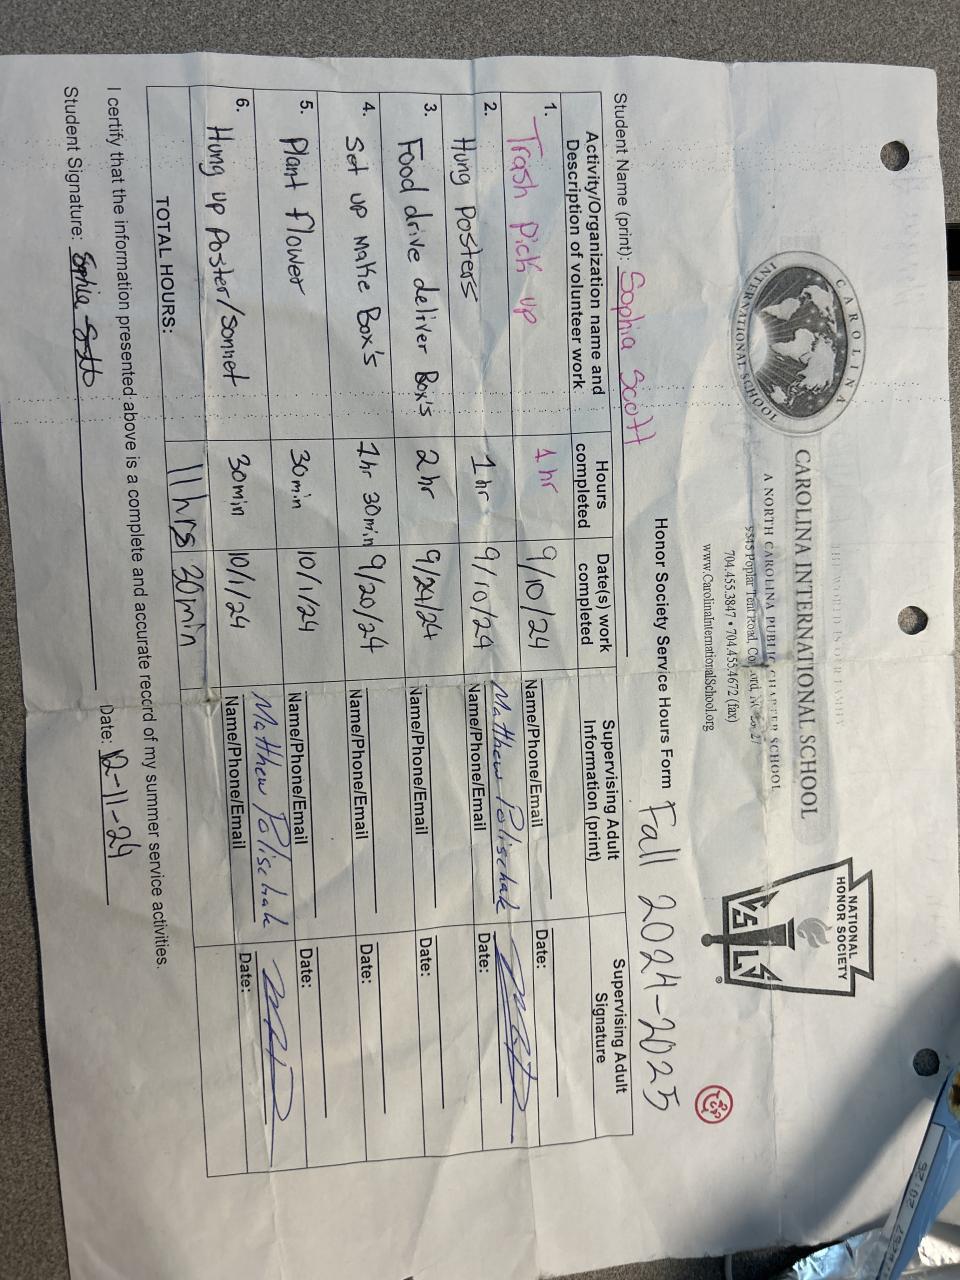 CAROLINA
INTERNATIONAL SCHOOL
CAROLINA INTERNATIONAL SCHOOL
A NORTH CAROLINA PUBLIC CHARTER SCHOOL
Poplar Tent Road,
704.455.3847 • 704.455.4672 (fax)
www.CarolinaInternationalSchool.org
NATIONAL
HONOR SOCIETY
®
Honor Society Service Hours Form Fall 2024-2025
Student Name (print): Sophia Scott
Activity/Organization name and Description of volunteer work
Hours completed
Date(s) work completed
Supervising Adult Information (print)
Supervising Adult Signature
1. Trash pick up 1 hr 9/10/24 Name/Phone/Email Date:
2. Hung Posters 1 hr 9/10/24 Matthew Polischak Name/Phone/Email Date:
3. Food drive deliver Box's 2 hr 9/24/24 Name/Phone/Email Date:
4. Set up Make Box's 1 hr 30 min 9/20/24 Name/Phone/Email Date:
5. Plant flower 30 min 10/1/24 Name/Phone/Email Date:
6. Hung up Poster/sonnet 30 min 10/1/24 Matthew Polischak Name/Phone/Email Date:
TOTAL HOURS: 11 hrs 30 min
I certify that the information presented above is a complete and accurate record of my summer service activities.
Student Signature: Sophia Scott Date: 12-11-24